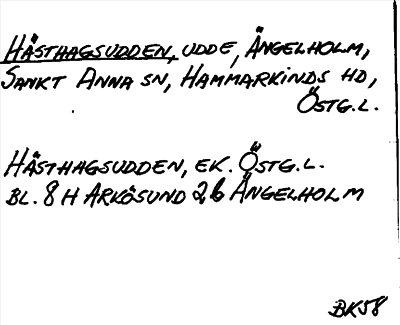 HÄSTHAGSUDDEN, UDDE, ÄNGELHOLM,
SANKT ANNA SN, HAMMARKINDS HD,
ÖSTG.L.
HÄSTHAGSUDDEN, EK. ÖSTG.L.
BL. 8 H ARKÖSUND 2 b ÄNGELHOLM
BK58